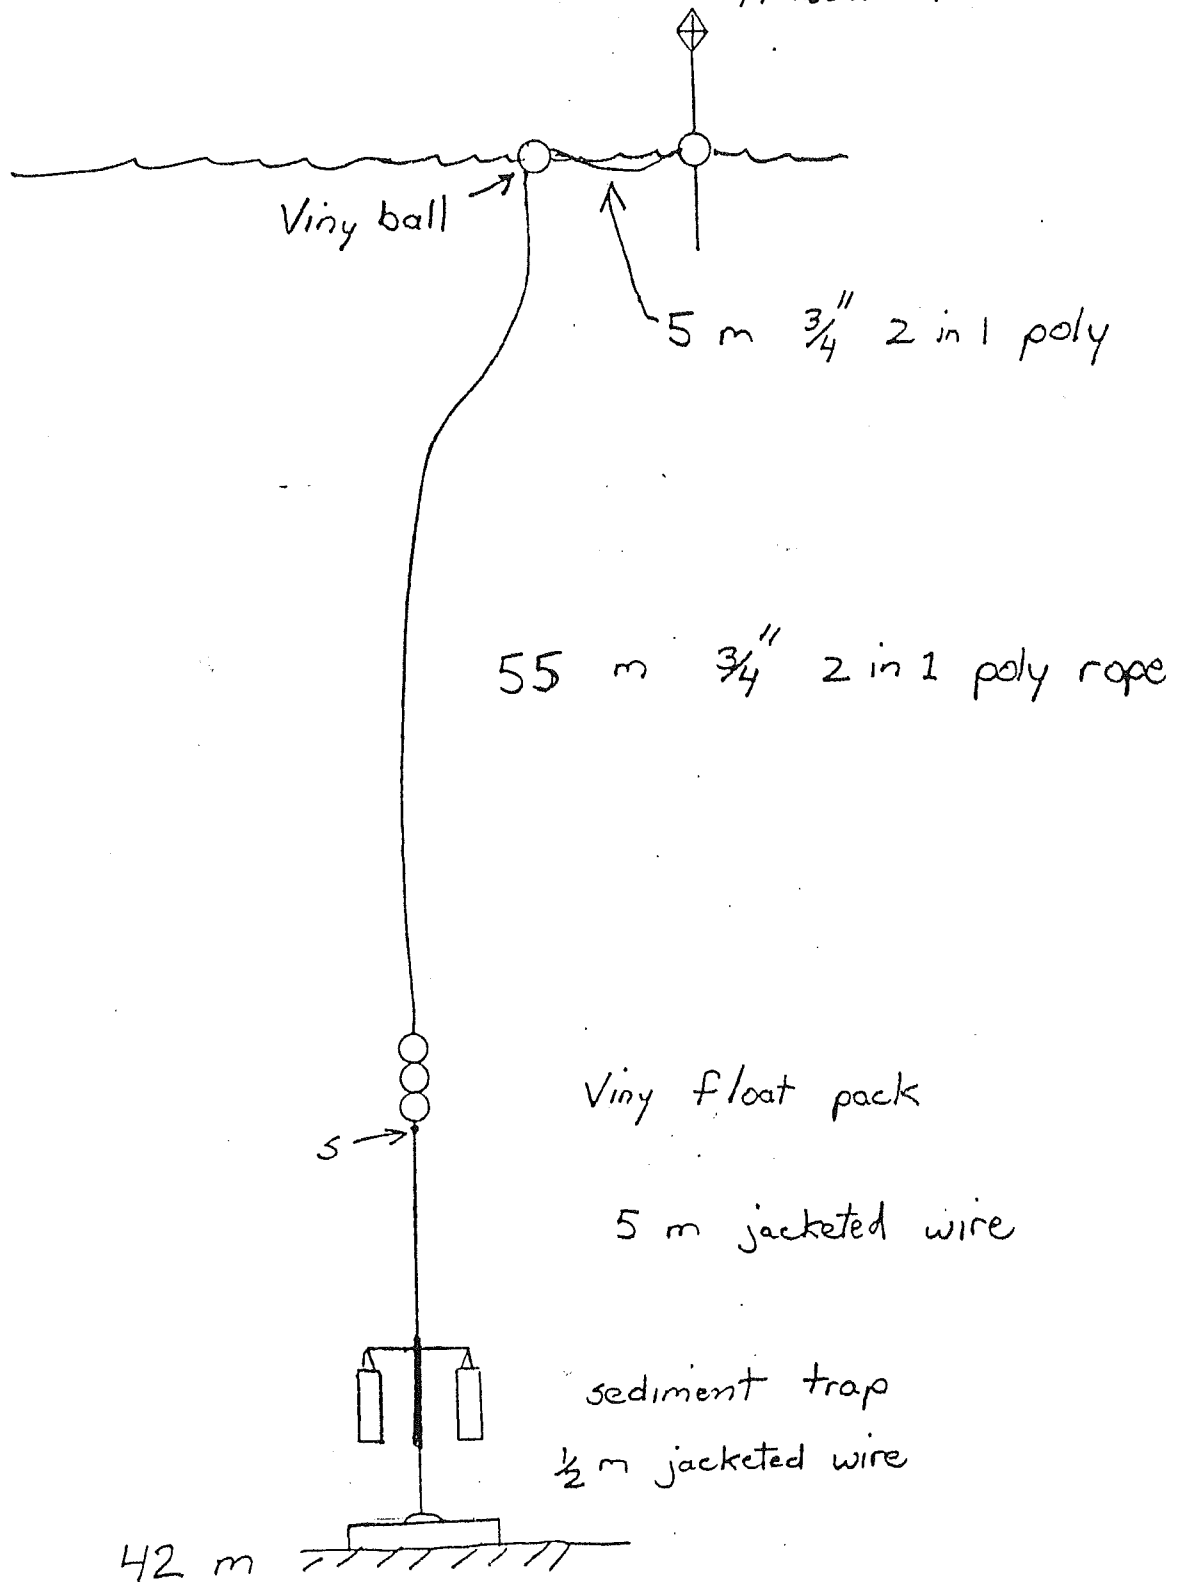 Viny ball
5 m 3/4" 2 in 1 poly
55 m 3/4" 2 in 1 poly rope
Viny float pack
S
5 m jacketed wire
sediment trap
1/2 m jacketed wire
42 m